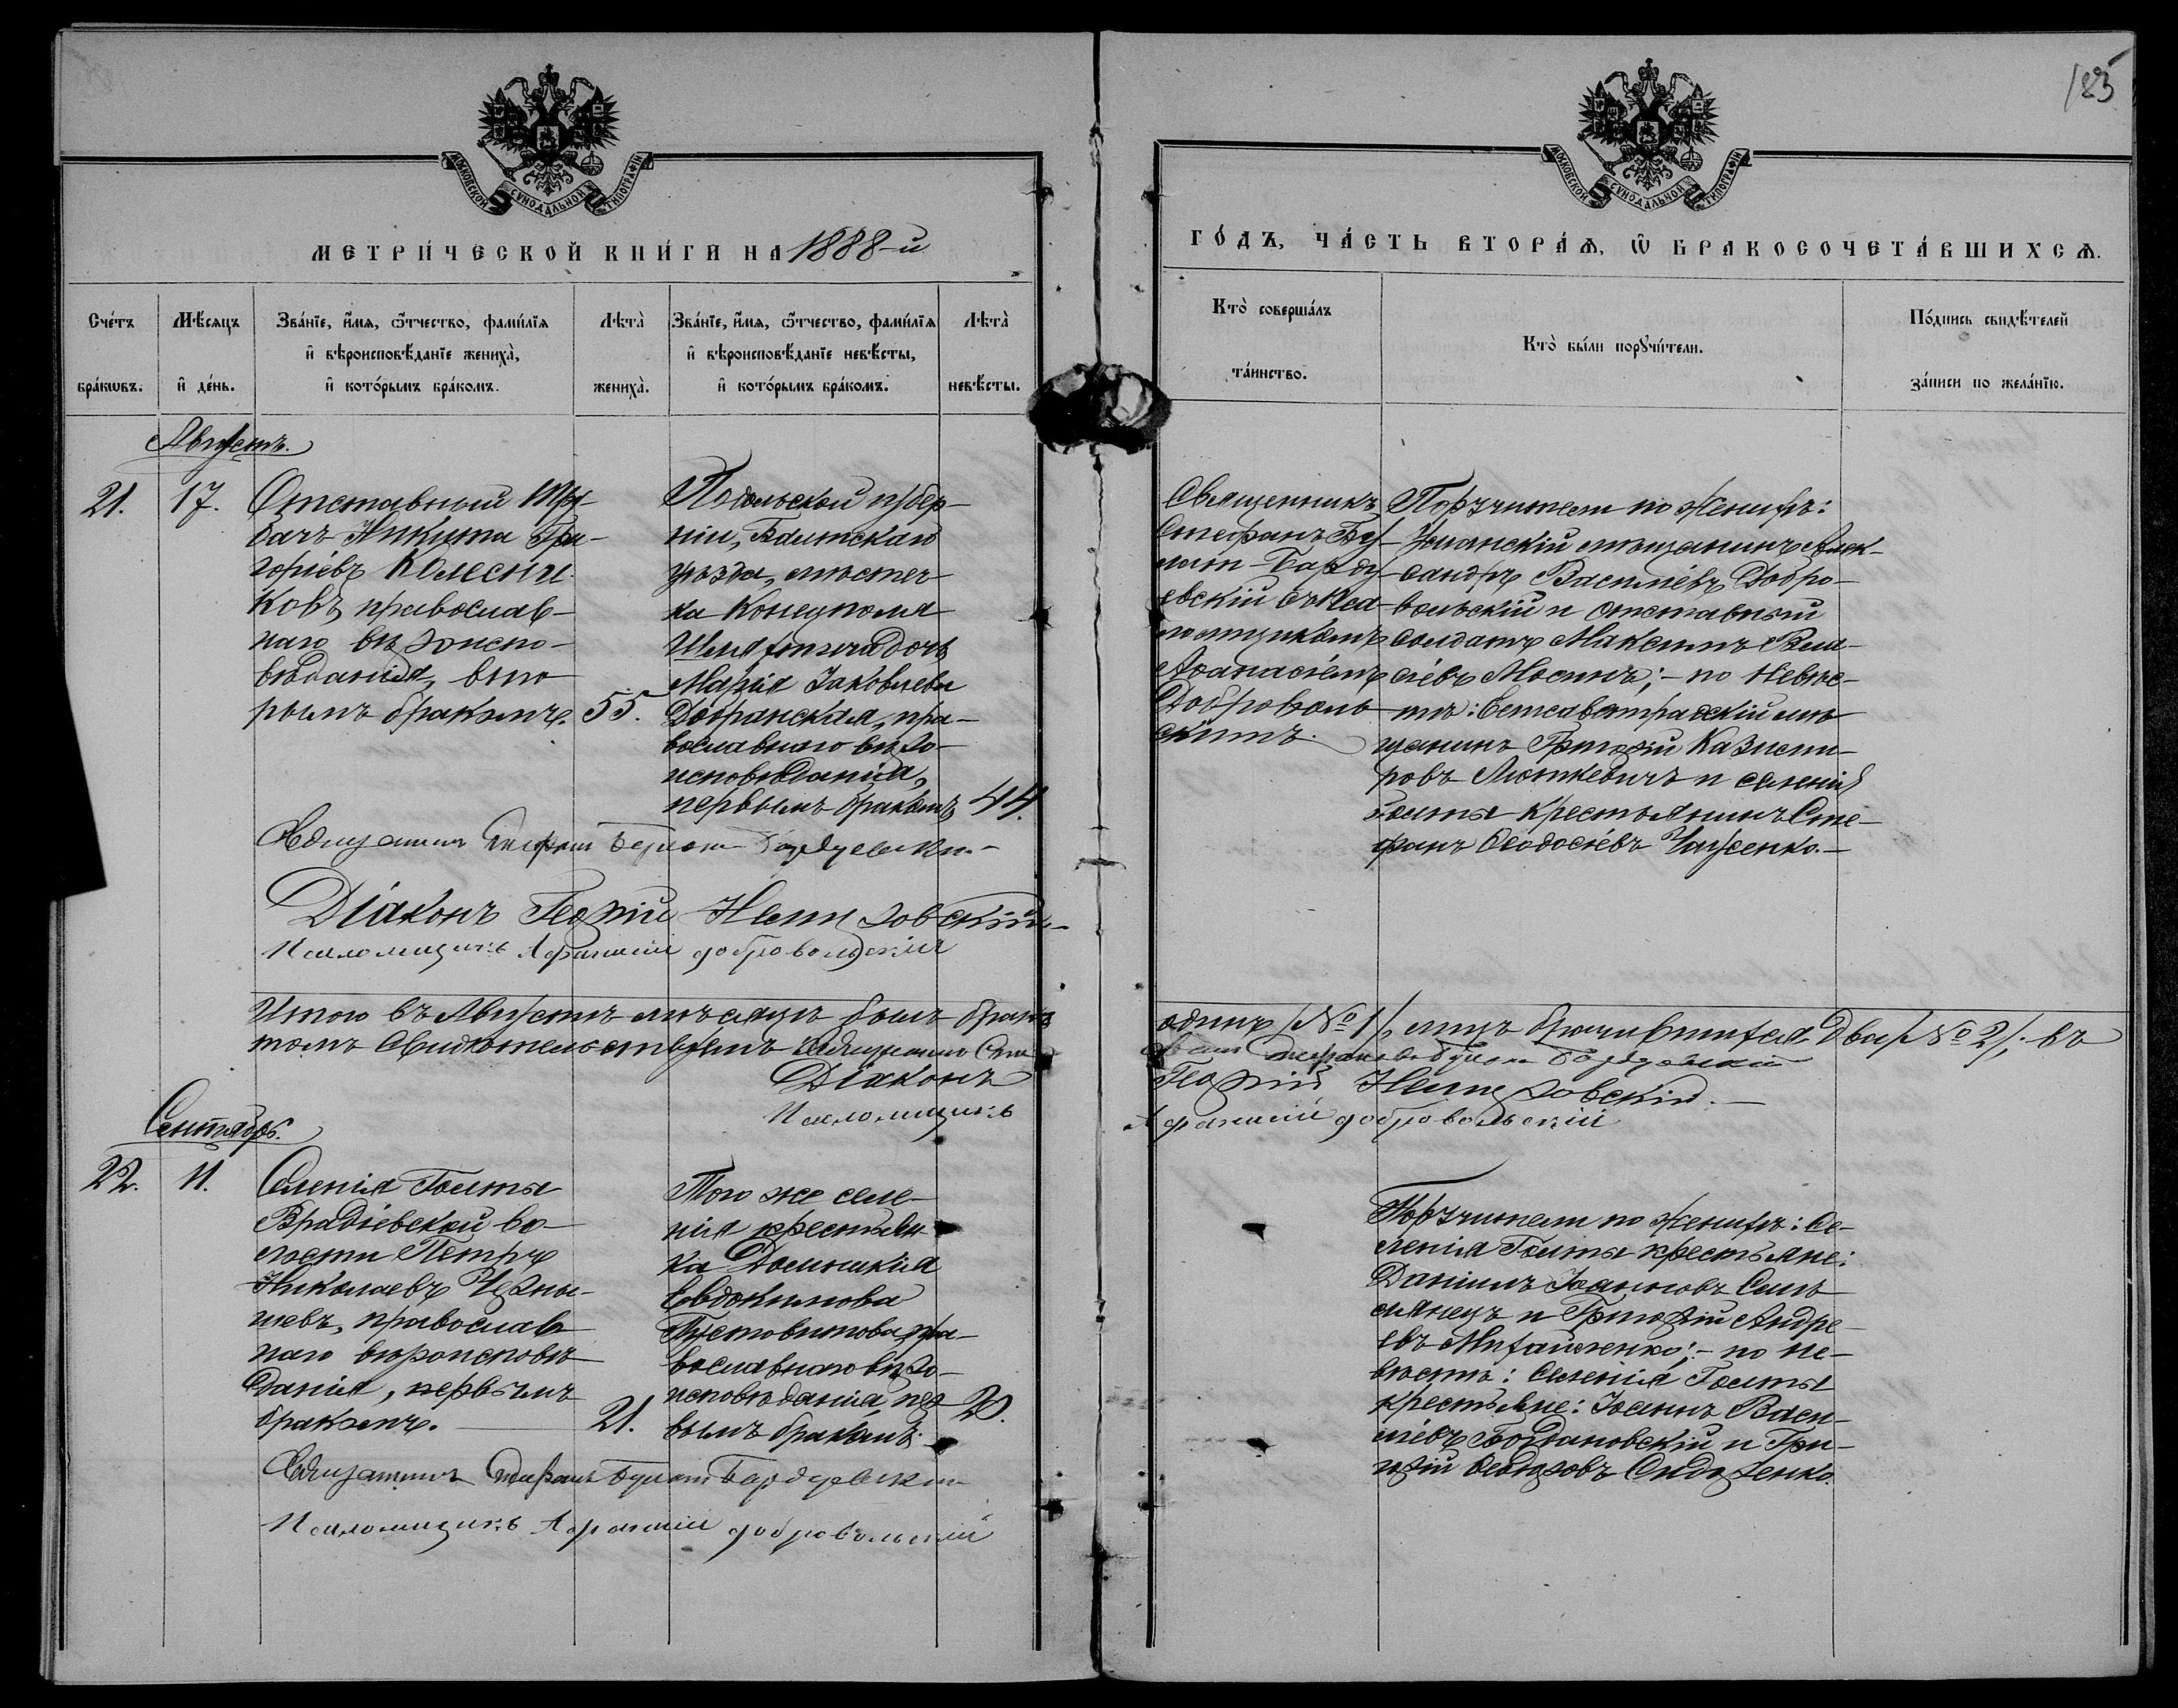 125
МОСКОВСКОЙ СѴНОДАЛЬНОЙ ТИПОГРАФІИ
МОСКОВСКОЙ СѴНОДАЛЬНОЙ ТИПОГРАФІИ
МЕТРИ́ЧЕСКОЙ КНИ́ГИ НА 1888-й
ГО́ДЪ, ЧА́СТЬ ВТОРА́Ѧ, Ѿ БРАКОСОЧЕТА́ВШИХСѦ.
Сче́тъ бра́кѡвъ.
Мѣ́сяцъ и҆ де́нь.
Зва́нїе, и҆́мѧ, ѻ҆́тчество, фами́лїѧ
и҆ вѣроисповѣ́данїе жениха̀,
и҆ кото́рымъ бра́комъ.
Лѣта̀ жениха̀.
Зва́нїе, и҆́мѧ, ѻ҆́тчество, фами́лїѧ
и҆ вѣроисповѣ́данїе невѣ́сты,
и҆ кото́рымъ бра́комъ.
Лѣта̀ невѣ́сты.
Кто̀ соверша́лъ
та́инство.
Кто̀ бы́ли порꙋчи́тели.
По́дпись свидѣ́телей
за́писи по жела́нїю.
Августъ.
21.
17.
Отставный Тру-
бачъ Никита Гри-
горіевъ Колесни-
ковъ, православ-
наго вѣроиспо-
вѣданія, вто
рымъ бракомъ.
55.
Подольской губер-
ніи, Балтскаго
уѣзда, мѣстеч-
ка Конецполя
Шляхтича дочь
Марія Іаковлева
Добранская, пра-
вославнаго вѣро-
исповѣданія,
первымъ бракомъ
44.
Священникъ
Стефанъ Бу-
лат-Барду-
евскій съ Пса-
ломщикомъ
Аѳанасіемъ
Доброволь-
скимъ.
Поручители по женихѣ:
Уманскій мѣщанинъ Алек-
сандръ Василіевъ Добро-
вольскій и отставный
солдатъ Максимъ Васи-
ліевъ Мосинъ; – по невѣс-
тѣ: Елисаветградскій мѣ-
щанинъ Григорій Казими-
ровъ Люткевичъ и селенія
Голты крестьянинъ Сте-
фанъ Ѳеодосіевъ
Священникъ Стефанъ Булат Бардуевскій
Діаконъ Георгій
Псаломщикъ Афанасій Добровольскій
Итого въ Августѣ мѣсяцѣ былъ бракъ
одинъ /№ 1/, лицъ брачившихся два /№ 2/; въ
томъ свидѣтельствуемъ: Священникъ Сте
Діаконъ
Георгій
Псаломщикъ
Афанасій Добровольскій
Сентябрь.
22.
11.
Селенія Голты
Врадіевской во-
лости Петръ
Николаевъ
православ-
наго вѣроисповѣ-
данія, первымъ
бракомъ.
21.
Того же селе-
нія крестьян-
ка Домникія
Евдокимова
Пустовитова, пра-
вославнаго вѣро-
исповѣданія, пер-
вымъ бракомъ.
20.
Поручители по женихѣ: Се-
ленія Голты крестьяне:
Даніилъ Іоанновъ
и Григорій Андре-
евъ Михайленко; – по не-
вѣстѣ: Селенія Голты
крестьяне: Іоаннъ Васи-
ліевъ Богдановскій и Гри-
горій Ѳеодоровъ Сидоренко.
Священникъ Стефанъ Булат Бардуевскій
Псаломщикъ Афанасій Добровольскій